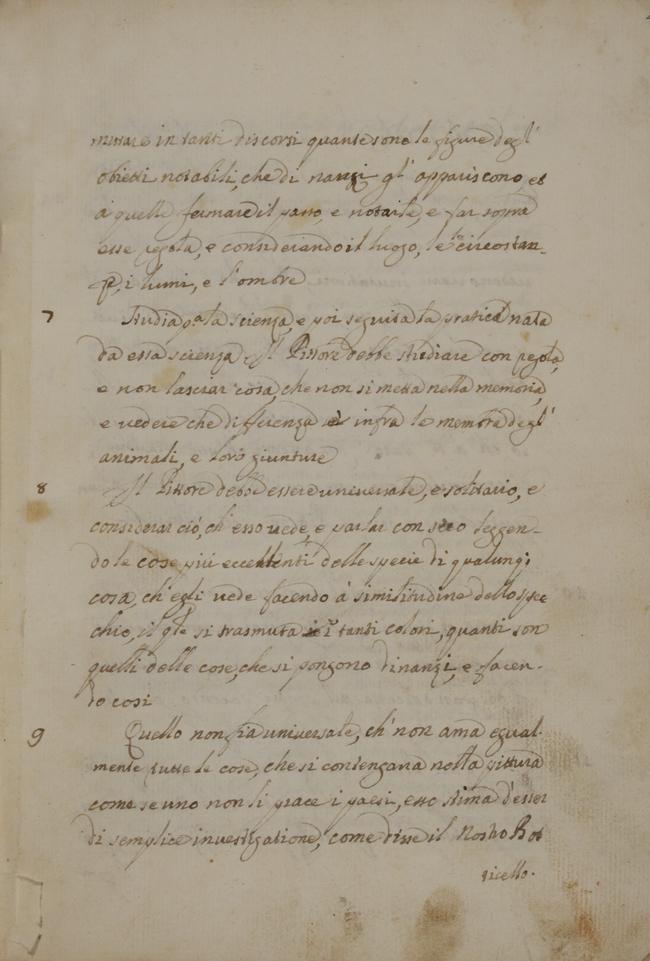 mutare in tanti discorsi quante sono le figure degl'
obietti notabili, che di nanzi gl' appariscono, et
à quelle fermare il passo e notarle, e far sopra
esse regola, e considerando il luogo, le circostan-
ze, i lumi, e l'ombre
7 Studia p.a la scienza, e poi seguita la pratica nata
da essa scienza. Il Pittore debbe studiare con regola,
e non lasciar cosa, che non si metta nella memoria,
e vedere che differenza è infra le membra degl'
animali, e loro giunture
8 Il Pittore debbe essere universale, e solitario, e
considerar ciò, ch' esso vede, e parlar con seco leggen-
do le cose più eccellenti delle specie di qualunq;
cosa, ch' egli vede facendo à similitudine dello spec
chio, il q.le si trasmuta ĩ tanti colori, quanti son
quelli delle cose, che si pongono dinanzi, e facen-
do cosi
9 Quello non fia universale, ch' non ama egual-
mente tutte le cose, che si contengana nella pittura
come se uno non li piace i paesi, esso stima d'esser
di semplice investigatione, come disse il Nostro Bot
ticello.